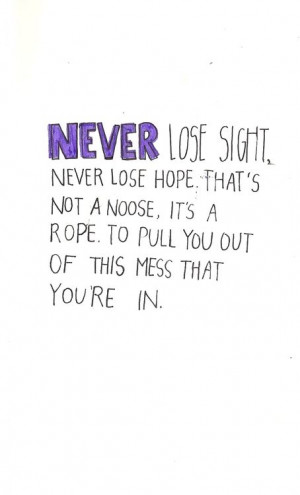 NEVER LOSE SIGHT,
NEVER LOSE HOPE. THAT'S
NOT A NOOSE, IT'S A
ROPE. TO PULL YOU OUT
OF THIS MESS THAT
YOU'RE IN.